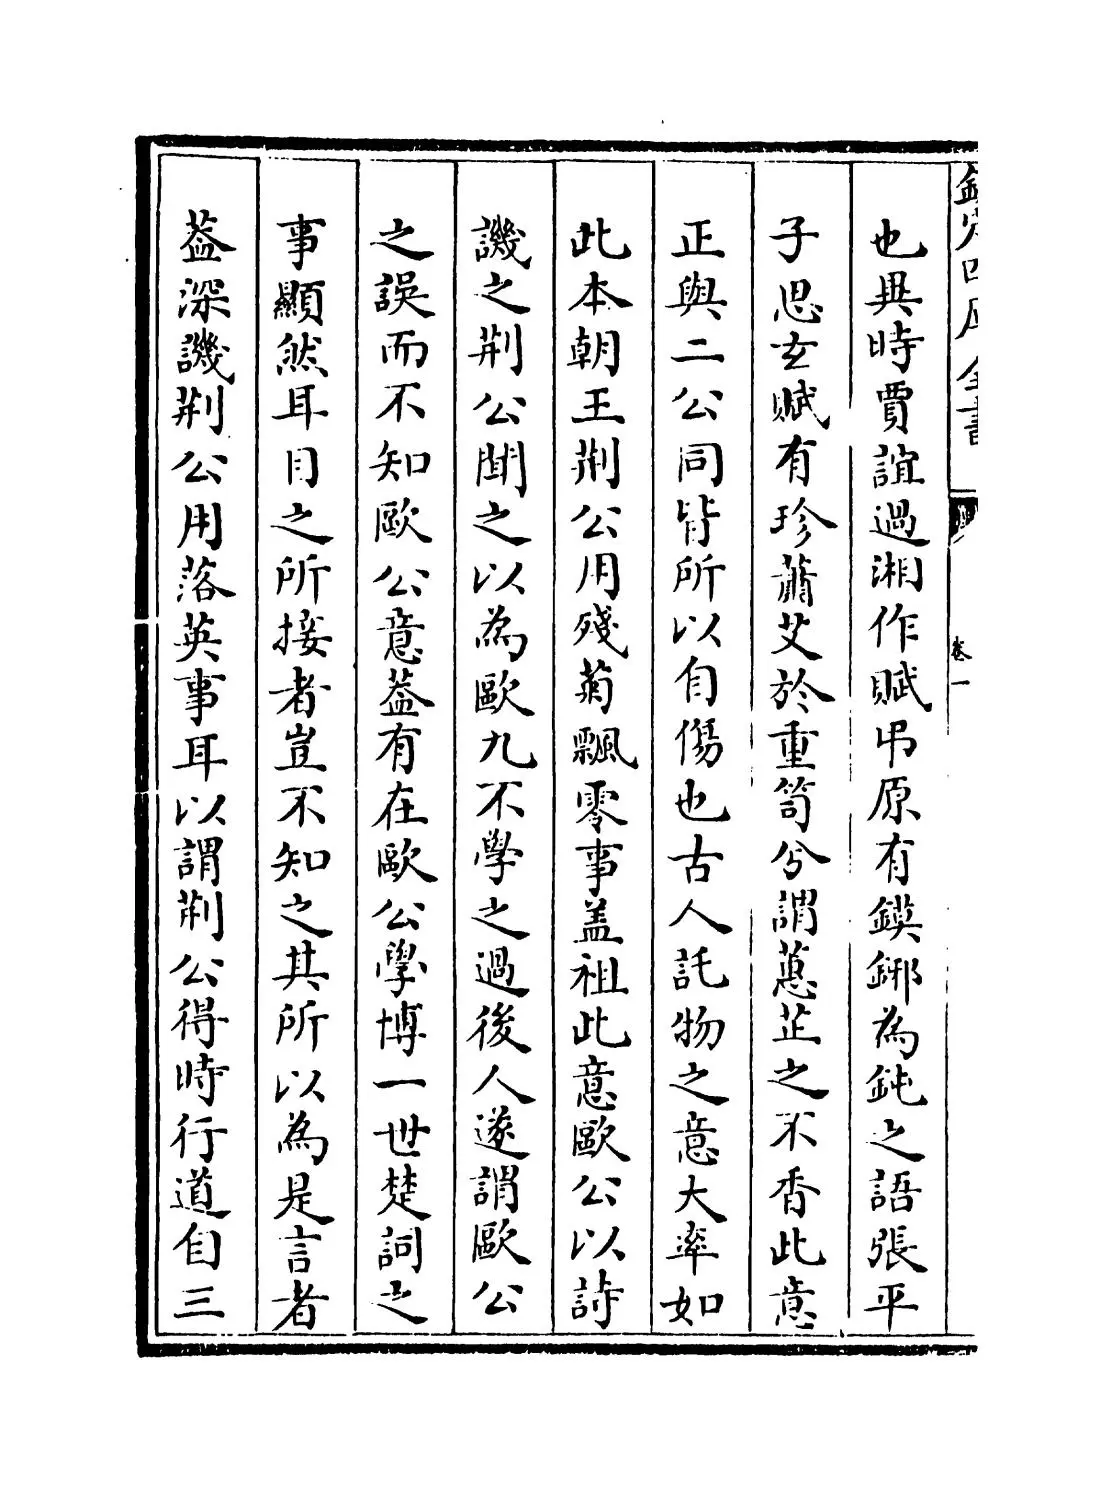 欽定四庫全書
卷一
也異時賈誼過湘作賦弔原有鏌鋣為鈍之語張平
子思玄賦有珍蕭艾於重笥兮謂蕙芷之不香此意
正與二公同皆所以自傷也古人託物之意大率如
此本朝王荆公用殘菊飄零事盖祖此意歐公以詩
譏之荆公聞之以為歐九不學之過後人遂謂歐公
之誤而不知歐公意葢有在歐公學博一世楚詞之
事顯然耳目之所接者豈不知之其所以為是言者
葢深譏荆公用落英事耳以謂荆公得時行道自三